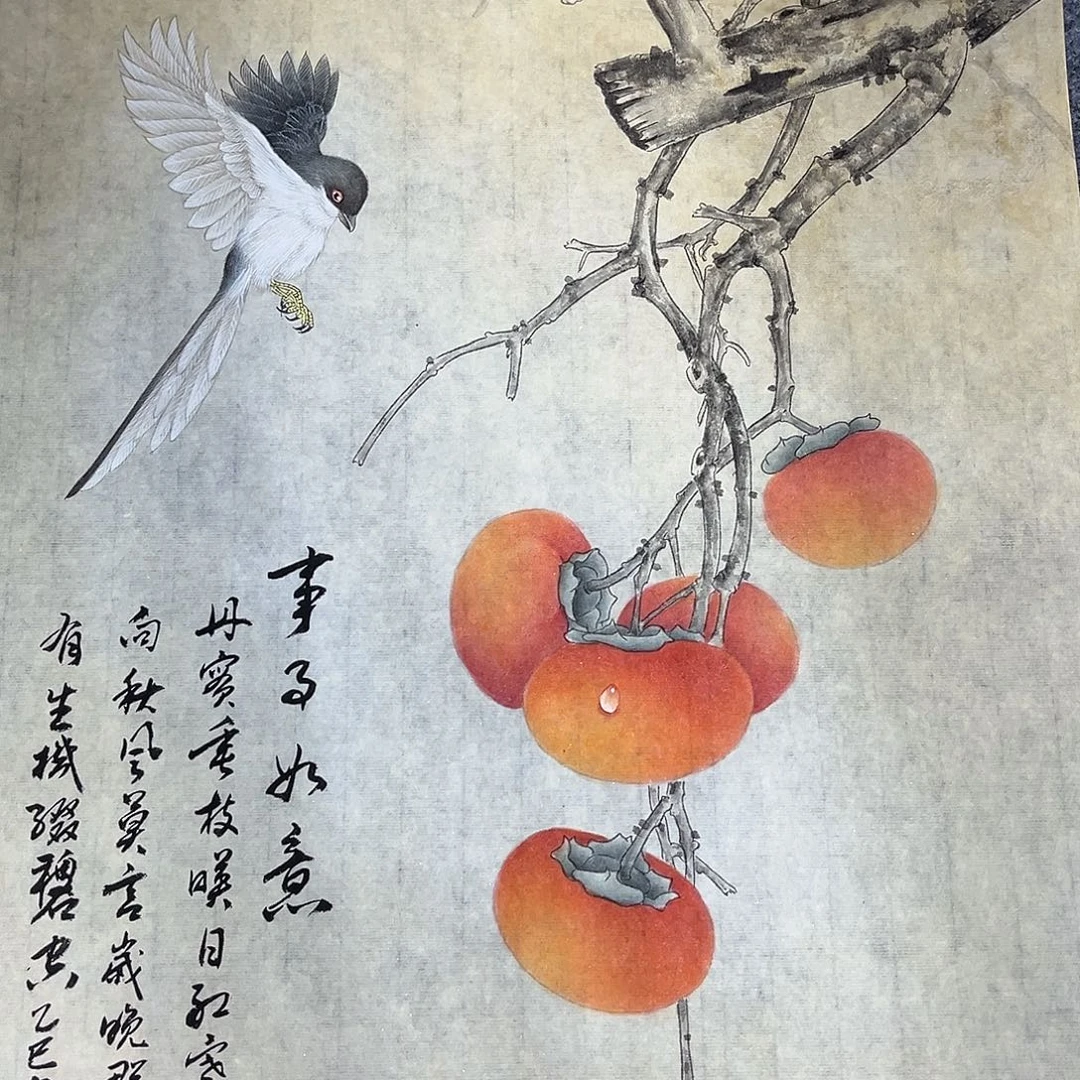 事事如意
丹實垂枝暎日紅
向秋風莫言歲晚
有生機綴碧空乙巳